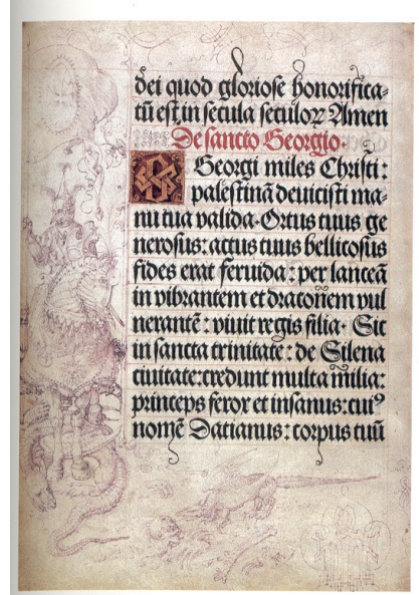 dei quod gloriose honorifica-
tũ est, in secula seculoꝝ Amen
De sancto Georgio.
Georgi miles Christi:
palestinã deuicisti ma-
nu tua valida. Ortus tuus ge
nerosus: actus tuus bellicosus
fides erat feruida: per lanceã
in vibrantem et draconem vul
nerantẽ: viuit regis filia. Sic
in sancta trinitate: de Silena
ciuitate: credunt multa milia:
princeps ferox et insanus: cuiꝰ
nomẽ Datianus: corpus tuũ